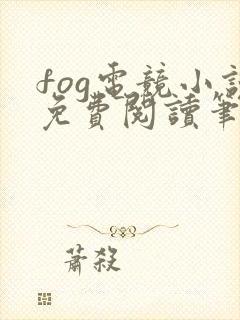 fog電競小說
免費閱讀筆
蕭殺